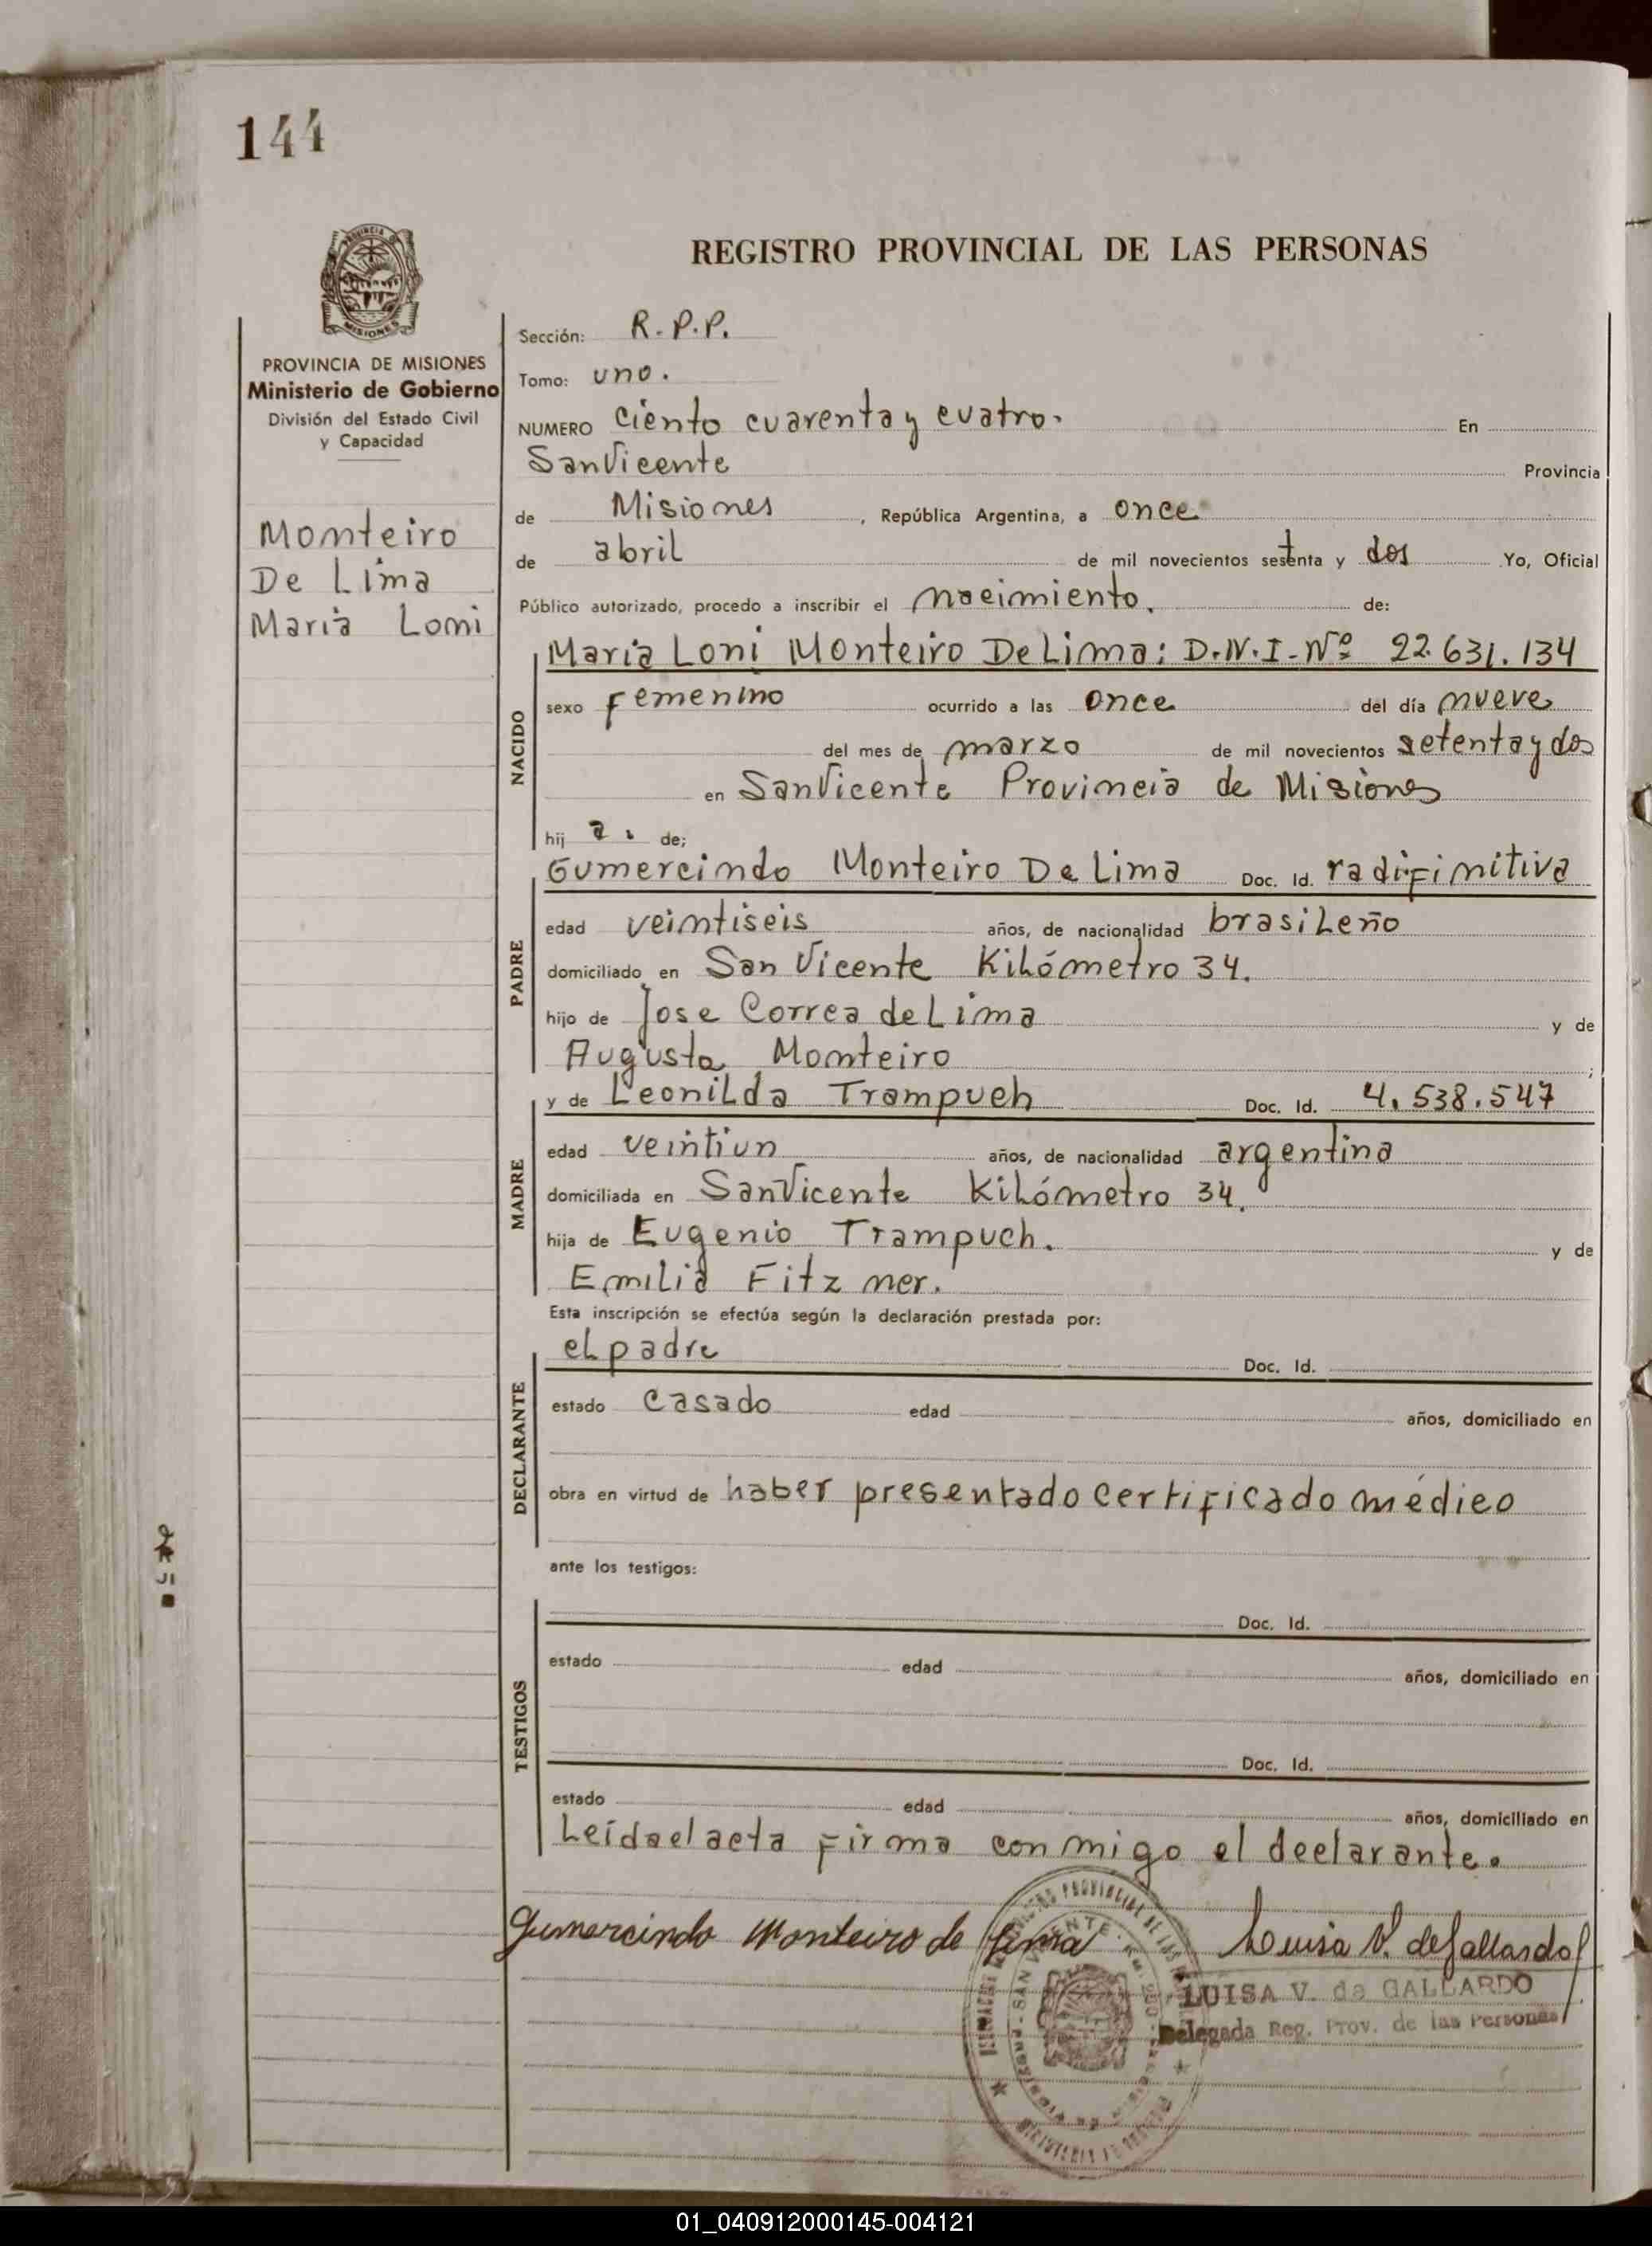 144
PROVINCIA DE MISIONES
Ministerio de Gobierno
División del Estado Civil
y Capacidad
Monteiro
De Lima
María Loni
REGISTRO PROVINCIAL DE LAS PERSONAS
Sección: R.P.P.
Tomo: uno.
NUMERO ciento cuarenta y cuatro. En
San Vicente Provincia
de Misiones, República Argentina, a once
de abril de mil novecientos setenta y dos Yo, Oficial
Público autorizado, procedo a inscribir el nacimiento. de:
NACIDO
María Loni Monteiro De Lima: D.N.I-Nº 22.631.134
sexo femenino ocurrido a las once del día nueve
del mes de marzo de mil novecientos setenta y dos
en San Vicente Provincia de Misiones
hij a. de;
PADRE
Gumercindo Monteiro De Lima Doc. Id. radifinitiva
edad veintiseis años, de nacionalidad brasileño
domiciliado en San Vicente Kilómetro 34.
hijo de Jose Correa de Lima y de
Augusta Monteiro;
MADRE
y de Leonilda Trampuch Doc. Id. 4.538.547
edad veintiun años, de nacionalidad argentina
domiciliada en San Vicente Kilómetro 34.
hija de Eugenio Trampuch. y de
Emilia Fitzner.
Esta inscripción se efectúa según la declaración prestada por:
DECLARANTE
el padre Doc. Id.
estado casado edad años, domiciliado en
obra en virtud de haber presentado certificado médico
ante los testigos:
TESTIGOS
Doc. Id.
estado edad años, domiciliado en
Doc. Id.
estado edad años, domiciliado en
Leída el acta firma conmigo el declarante.
Gumercindo Monteiro de Lima Luisa V. de Gallardo
LUISA V. de GALLARDO
Delegada Reg. Prov. de las Personas
01_040912000145-004121